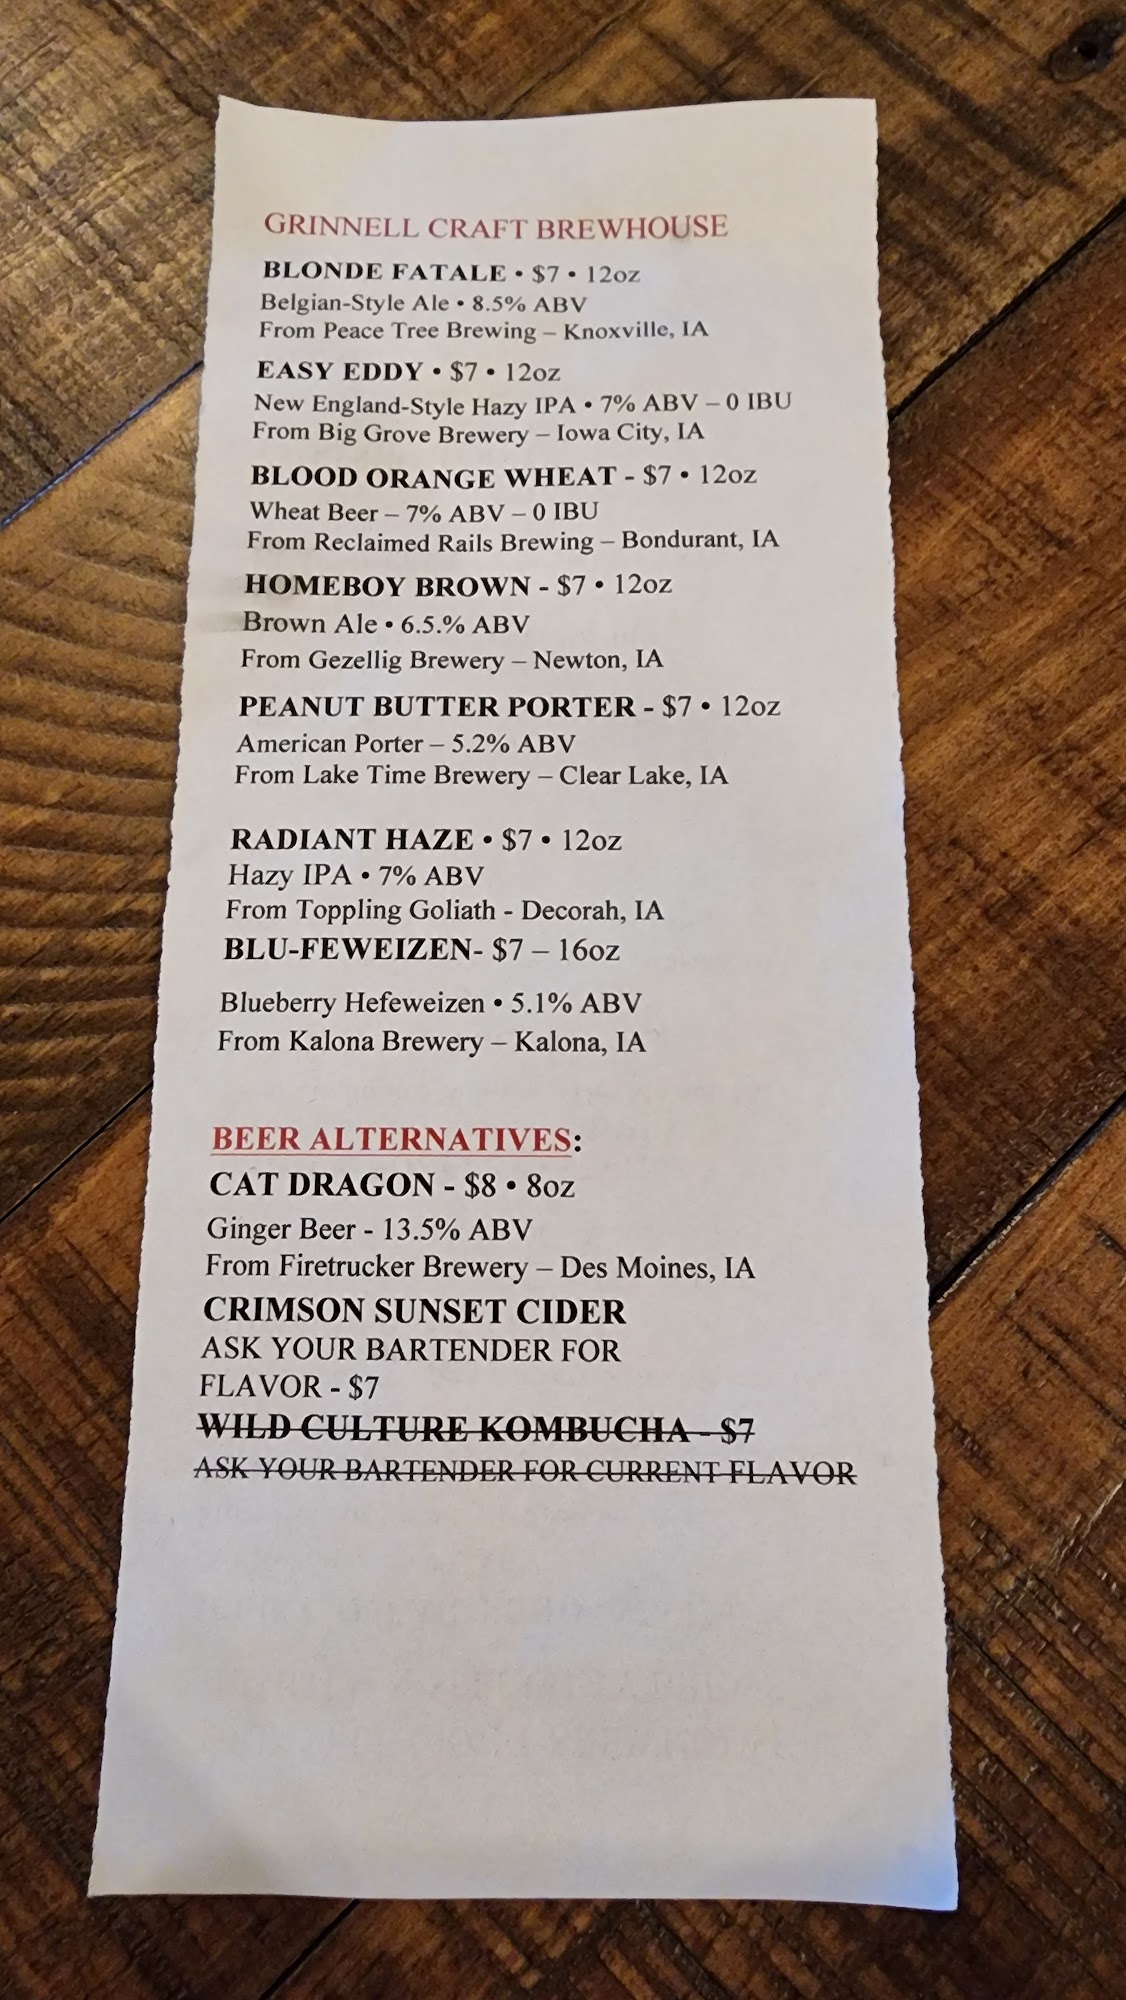 GRINNELL CRAFT BREWHOUSE
BLONDE FATALE • $7 • 12oz
Belgian-Style Ale • 8.5% ABV
From Peace Tree Brewing – Knoxville, IA
EASY EDDY • $7 • 12oz
New England-Style Hazy IPA • 7% ABV – 0 IBU
From Big Grove Brewery – Iowa City, IA
BLOOD ORANGE WHEAT - $7 • 12oz
Wheat Beer – 7% ABV – 0 IBU
From Reclaimed Rails Brewing – Bondurant, IA
HOMEBOY BROWN - $7 • 12oz
Brown Ale • 6.5.% ABV
From Gezellig Brewery – Newton, IA
PEANUT BUTTER PORTER - $7 • 12oz
American Porter – 5.2% ABV
From Lake Time Brewery – Clear Lake, IA
RADIANT HAZE • $7 • 12oz
Hazy IPA • 7% ABV
From Toppling Goliath - Decorah, IA
BLU-FEWEIZEN- $7 – 16oz
Blueberry Hefeweizen • 5.1% ABV
From Kalona Brewery – Kalona, IA
BEER ALTERNATIVES:
CAT DRAGON - $8 • 8oz
Ginger Beer - 13.5% ABV
From Firetrucker Brewery – Des Moines, IA
CRIMSON SUNSET CIDER
ASK YOUR BARTENDER FOR
FLAVOR - $7
WILD CULTURE KOMBUCHA - $7
ASK YOUR BARTENDER FOR CURRENT FLAVOR